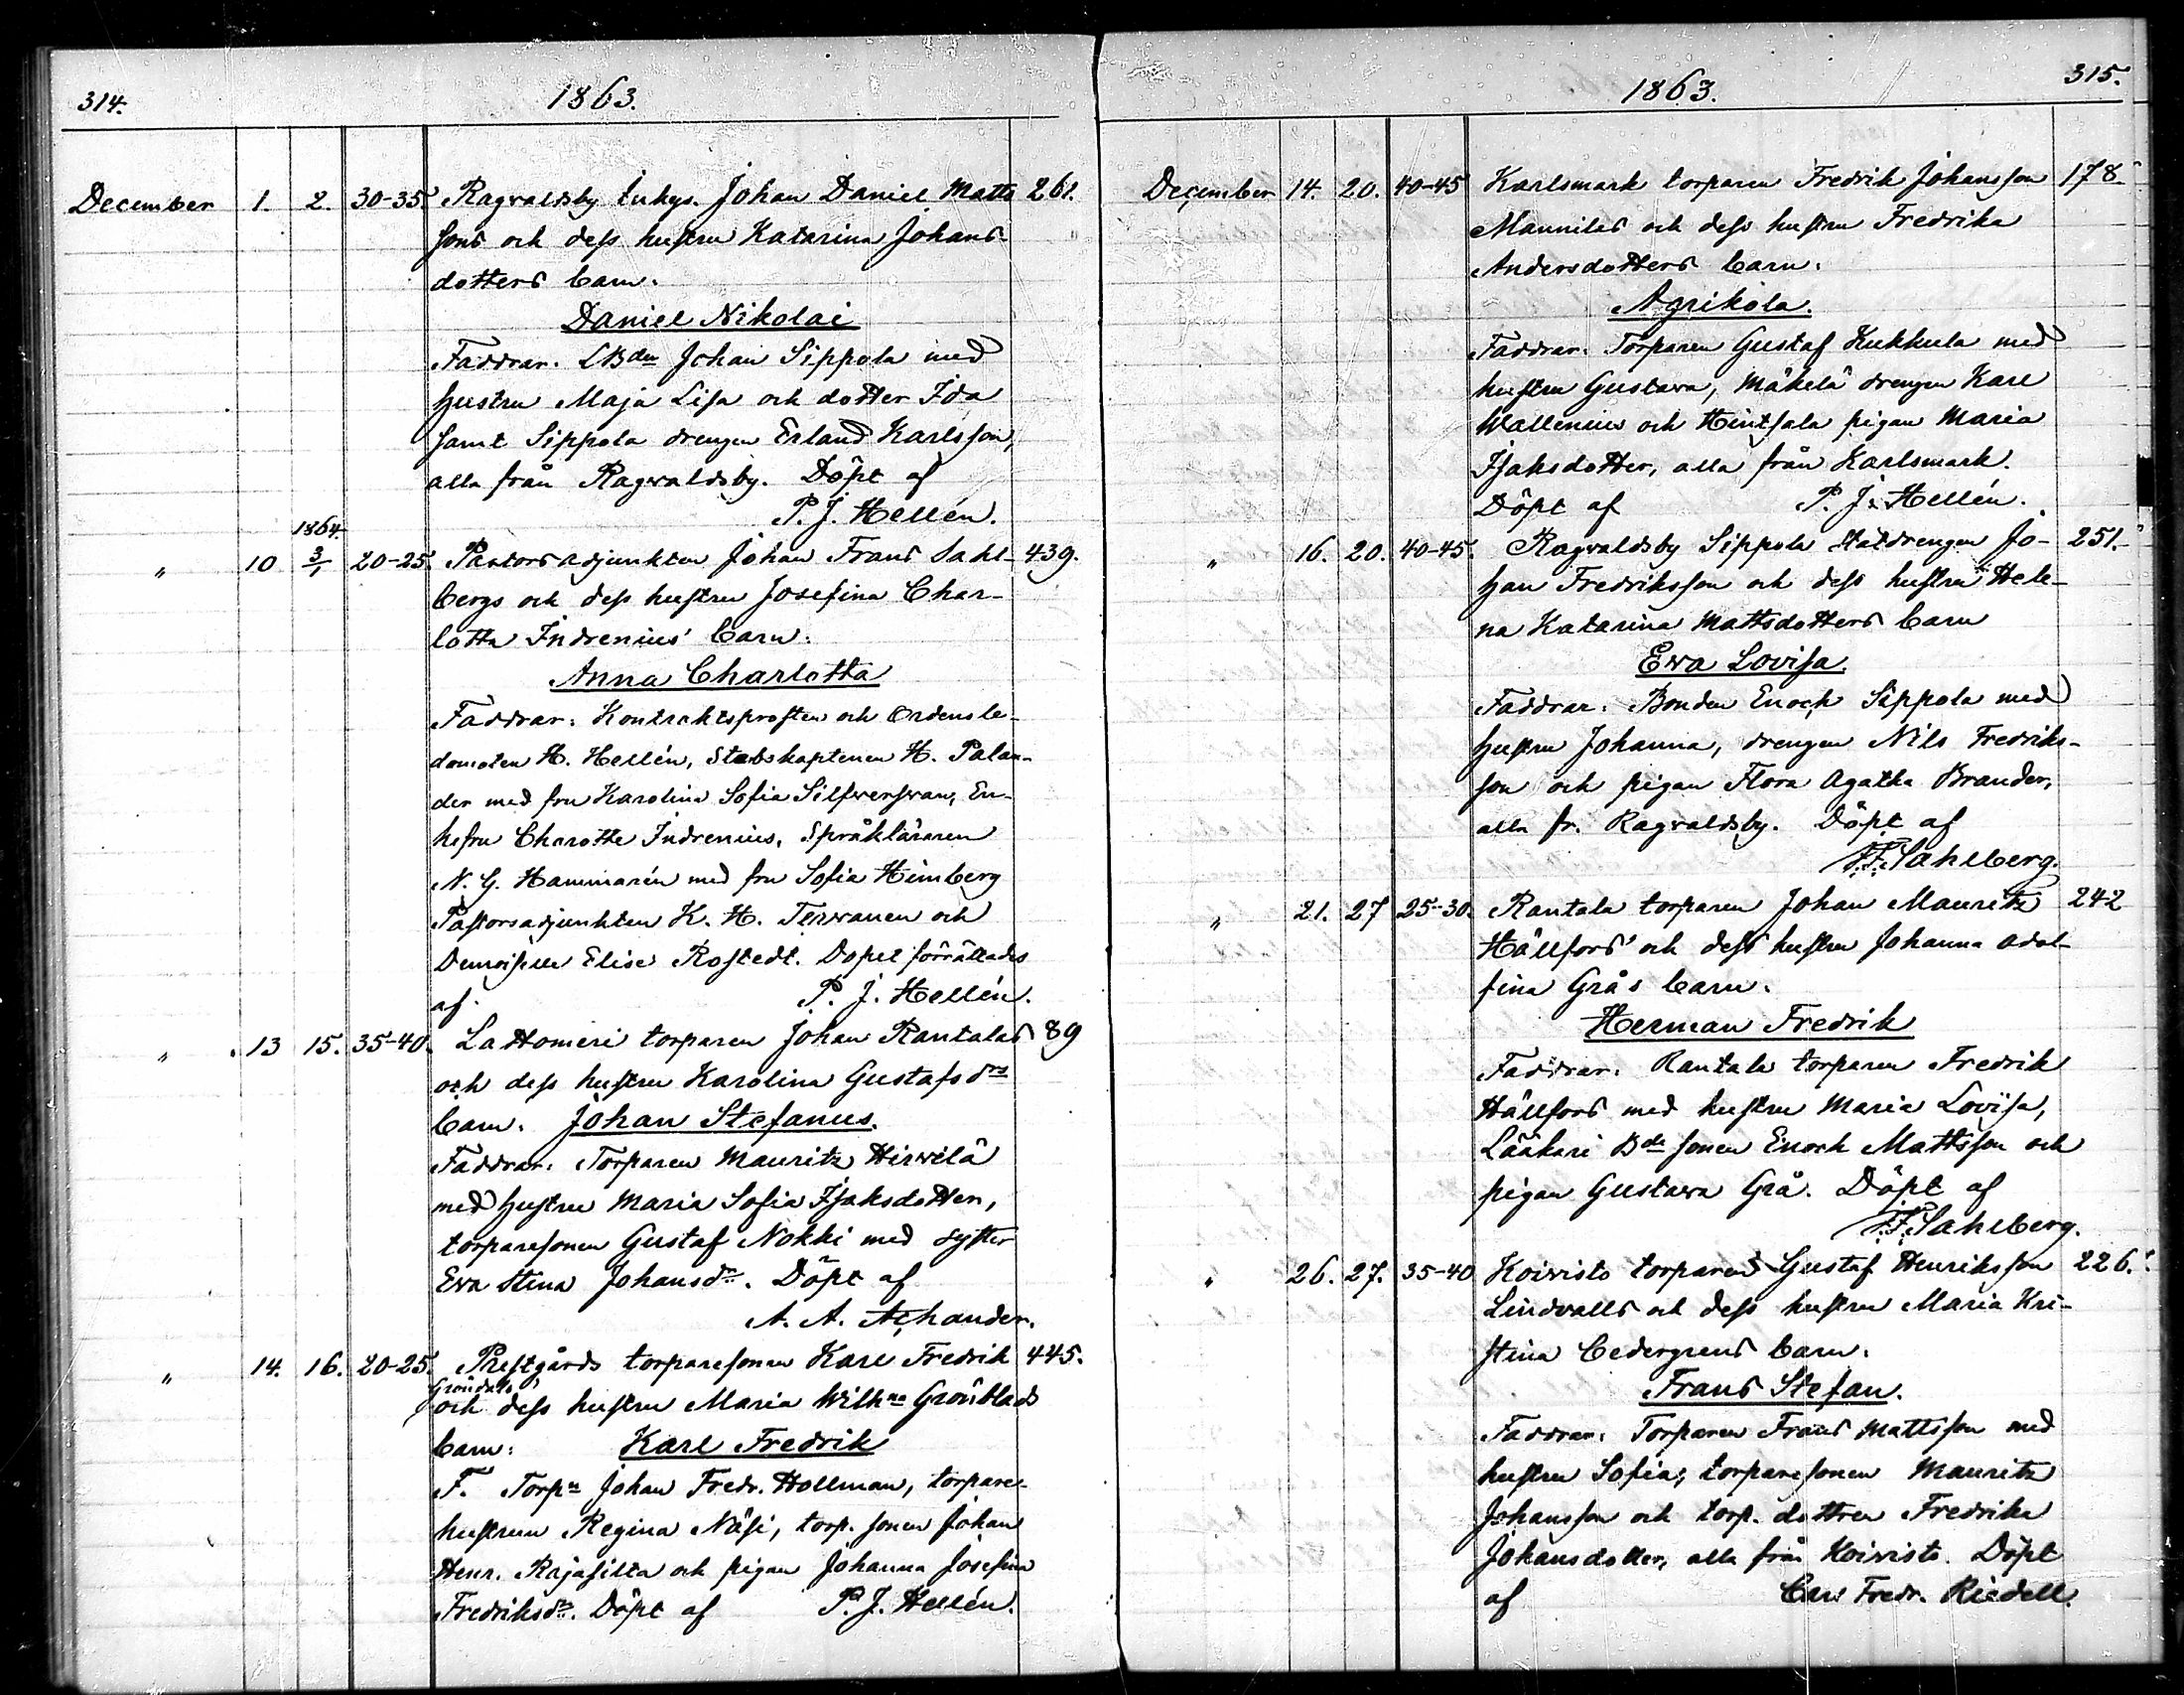 314.
1863.
December 1. 2. 30-35. Ragvaldsby Inhys. Johan Daniel Matts 261.
sons och dess hustru Katarina Johans-
dotters barn.
Daniel Nikolai
Faddrar. LBden Johan Sippola med
hustru Maja Lisa och dotter Ida
samt Sippola drengen Erland Karlsson,
alla från Ragvaldsby. Döpt af
P. J. Hellén.
1864.
" 10 3/1 20-25. Pastorsadjunkten Johan Frans Sahl- 439.
bergs och dess hustru Josefina Char-
lotta Indrenius' barn.
Anna Charlotta
Faddrar: Kontraktsprosten och Ordensle-
damoten H. Hellén, Stabskaptenen H. Palan-
der med fru Karolina Sofia Silfverswan, En-
kefru Charotte Indrenius, Språkläraren
N. G. Hammarén med fru Sofia Heimberg
Pastorsadjunkten K. H. Terwanen och
Demoiselle Elise Rostedt. Dopet förrättades
af P. J. Hellén.
" 13 15. 35-40. Lattomeri torparen Johan Rantalas 89
och dess hustru Karolina Gustafsdrs
barn. Johan Stefanus.
Faddrar: Torparen Mauritz Hirwilä
med hustru Maria Sofia Isaksdotter,
torparesonen Gustaf Nokki med syster
Eva Stina Johansdr. Döpt af
A. A. Achander.
" 14. 16. 20-25. Prestgårds torparesonen Karl Fredrik 445.
Gröndals
och dess hustru Maria Wilhna Grönblads
barn: Karl Fredrik
F. Torpn Johan Fredr. Hollman, torpare-
hustrun Regina Näsi, torp. sonen Johan
Henr. Rajasilta och pigan Johanna Josefina
Fredriksdr. Döpt af P. J. Hellén.
315.
1863.
December 14. 20. 40-45 Karlsmark torparen Fredrik Johansson 178.
Mannilas och dess hustru Fredrika
Andersdotters barn.
Agrikola.
Faddrar. Torparen Gustaf Kukkula med
hustru Gustava, Mäkelä drengen Karl
Wallenius och Hintsala pigan Maria
Isaksdotter, alla från Karlsmark.
Döpt af P. J. Hellén.
" 16. 20. 40-45. Ragvaldsby Sippola Statdrengen Jo- 251.
han Fredriksson och dess hustru Hele-
na Katarina Mattsdotters barn
Ewa Lovisa.
Faddrar. Bonden Enoch Sippola med
hustru Johanna, drengen Nils Fredriks-
son och pigan Flora Agatha Brander,
alla fr. Ragvaldsby. Döpt af
J. F. Sahlberg.
" 21. 27 25-30. Rantala torparen Johan Mauritz 242
Hällfors' och dess hustru Johanna Adol-
fina Grås barn.
Herman Fredrik
Faddrar. Rantala torparen Fredrik
Hällfors med hustru Maria Lovisa,
Lääkäri Bde sonen Enoch Mattsson och
pigan Gustava Grå. Döpt af
J. F. Sahlberg.
" 26. 27. 35-40 Koivisto torparens Gustaf Henriksson 226.
Lindvalls och dess hustru Maria Kri-
stina Cedergrens barn.
Frans Stefan.
Faddrar. Torparen Frans Mattsson med
hustru Sofia, torparesonen Mauritz
Johansson och torp. dottren Fredrika
Johansdotter, alla från Koivisto. Döpt
af Carl Fredr. Riedell.